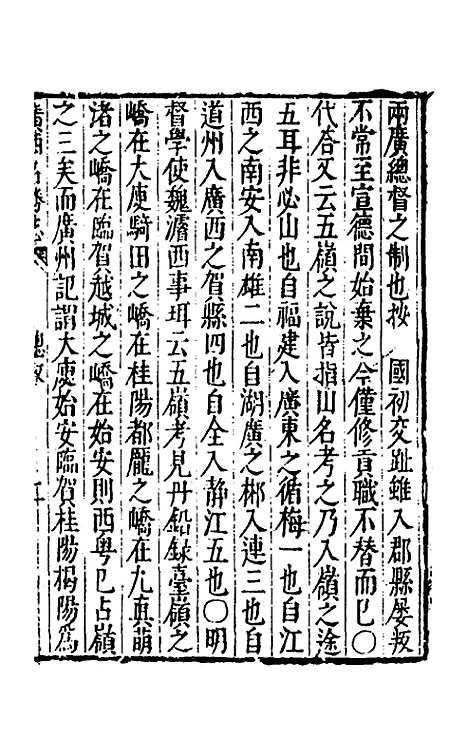 兩廣總督之制也按　國初交趾雖入郡縣屡叛
不常至宣德間始棄之今僅修貢職不替而巳〇
代荅又云五嶺之說皆指山名考之乃入嶺之途
五耳非必山也自福建入廣東之循梅一也自江
西之南安入南雄二也自湖廣之郴入連三也自
道州入廣西之賀縣四也自全入静江五也〇明
督學使魏濬西事珥云五嶺考見丹鉛録臺嶺之
嶠在大庾騎田之嶠在桂陽都龎之嶠在九真萌
渚之嶠在臨賀越城之嶠在始安則西粤巳占嶺
之三矣而廣州記謂大庾始安臨賀桂陽揭陽爲
廣西名勝志　總敘